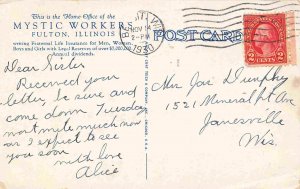 This is the Home Office of the
MYSTIC WORKERS
FULTON, ILLINOIS
writing Fraternal Life Insurance for Men, Women
Boys and Girls with Legal Reserves of over
POST CARD
NOV
2-PM
1930
2 CENTS 2
Dear Sister
Received your
letter & sure and
come down Tuesday
not write much now
as I expect to see
you soon
with love
Alice
Mrs Joe Dunphy
1521 Mineral Pt Ave
Janesville
Wis.